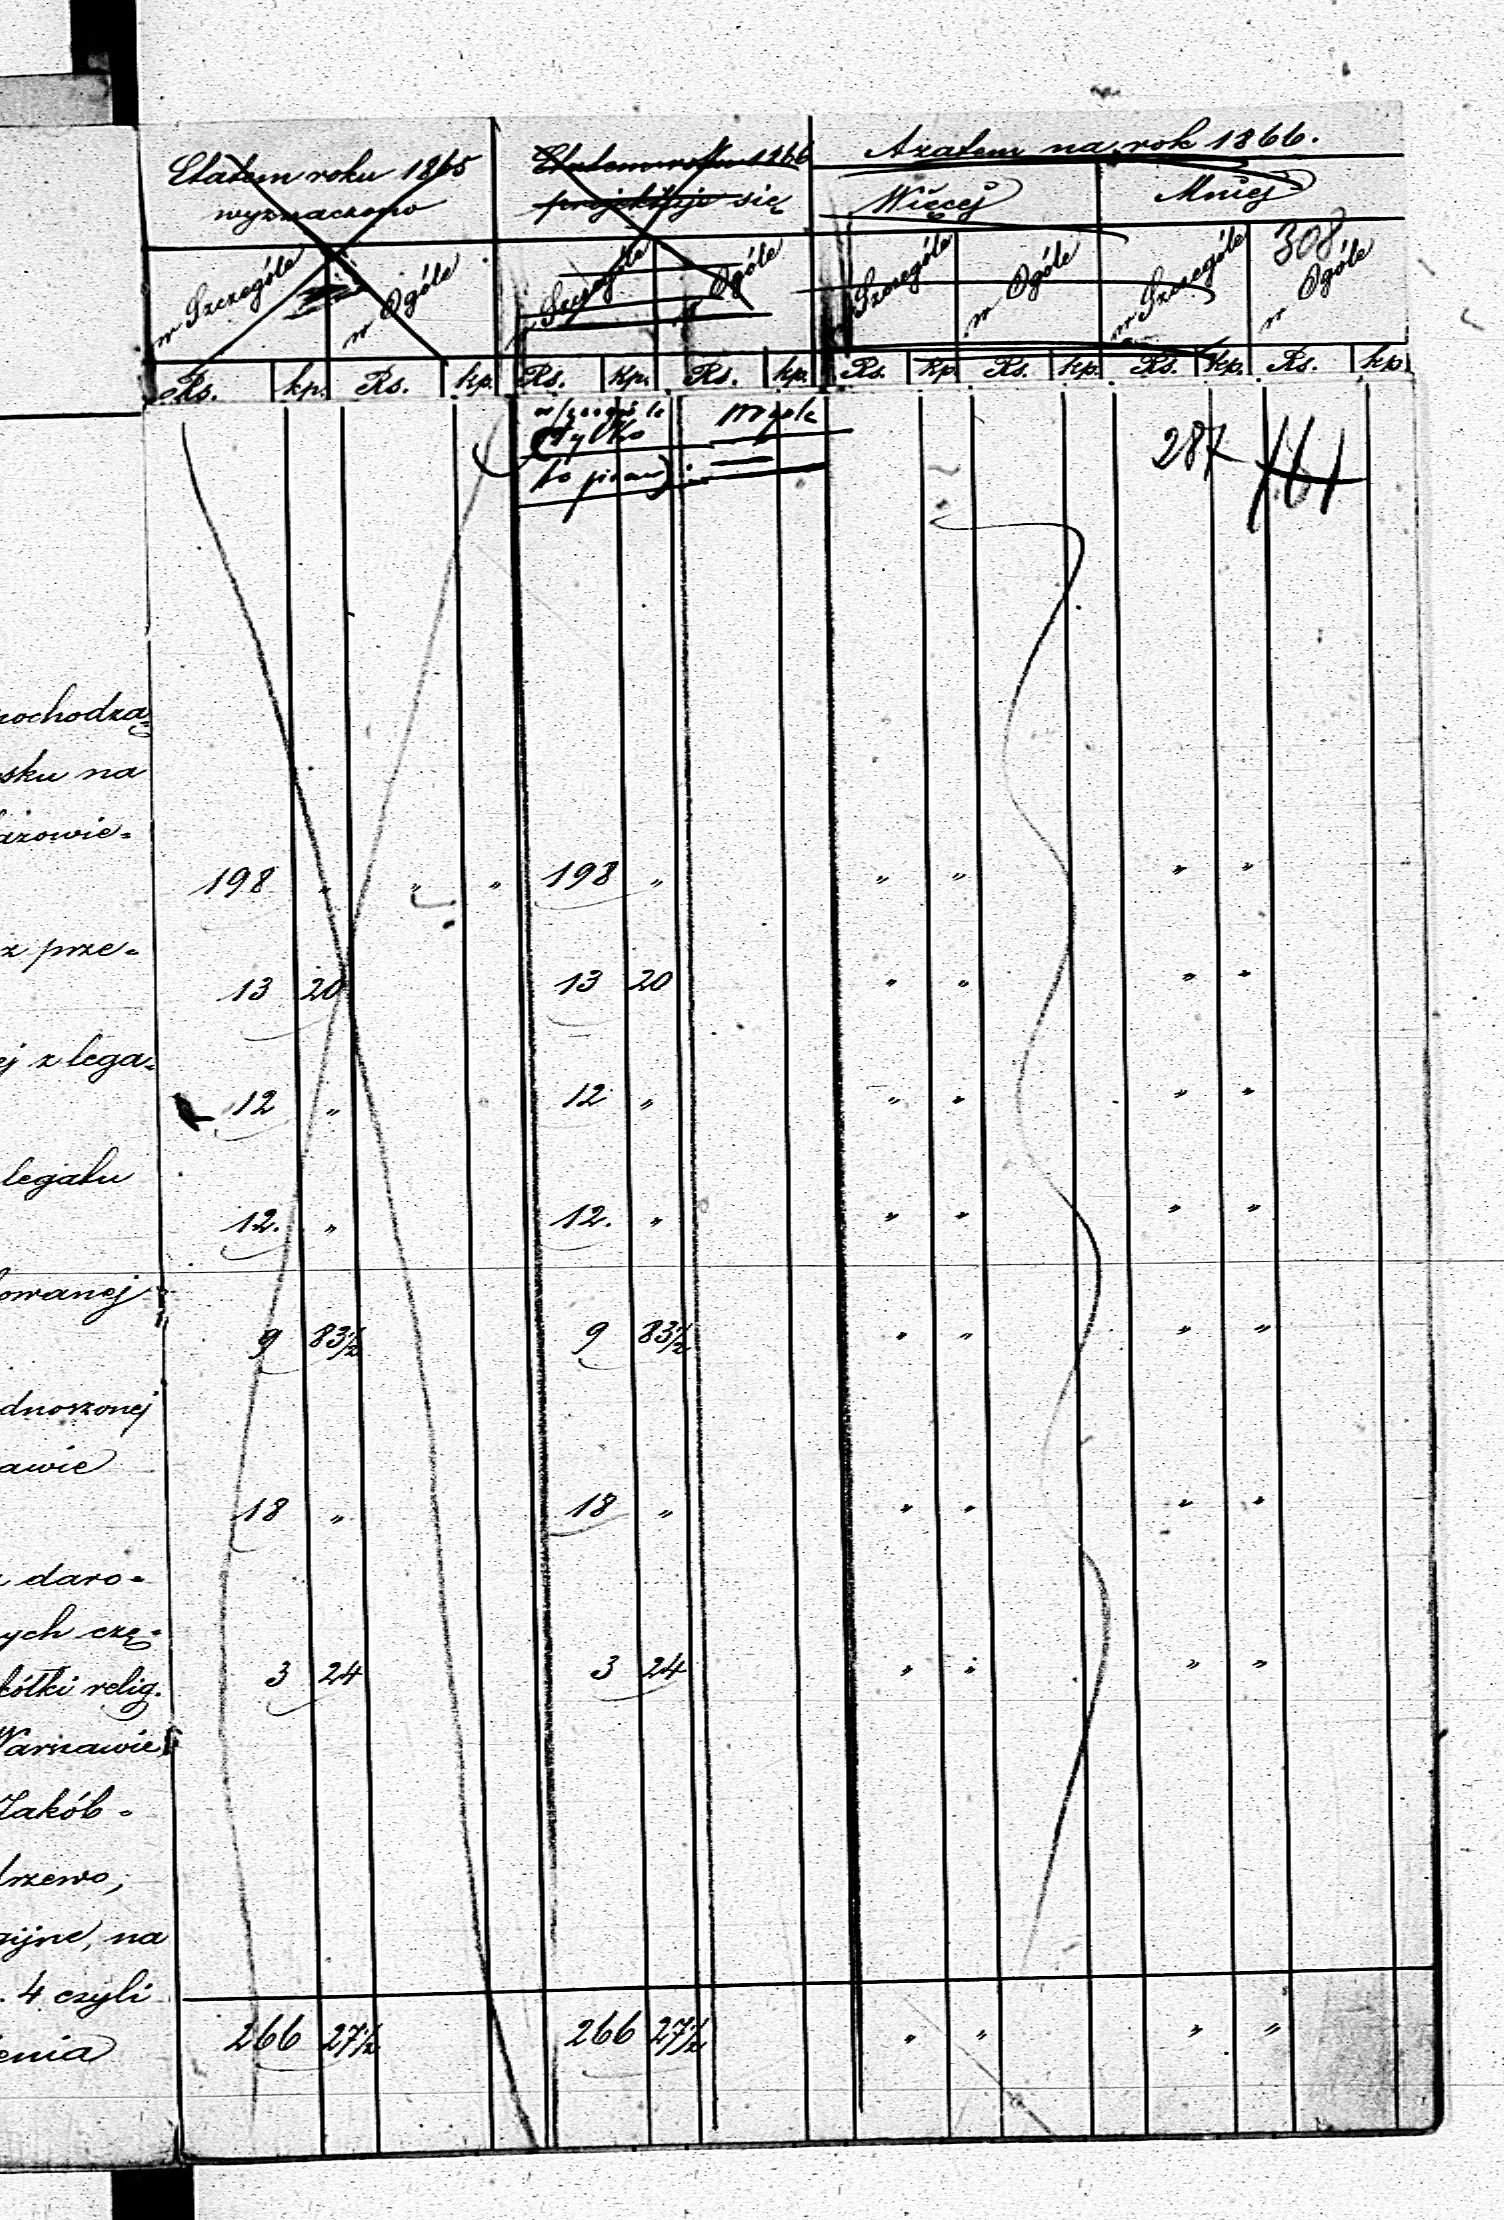 Etatem roku 1865 Etatem roku 1866 A zatem na rok 1866.
wyznaczono projektuje się Więcej Mniej
308
w Szczególe w Ogóle w Szczególe w Ogóle w Szczególe w Ogóle w Szczególe w Ogóle
Rs. kp. Rs. kp. Rs. kp. Rs. kp. Rs. kp. Rs. kp. Rs. kp. Rs. kp.
tylko
287
pochodzą=
sku na
azowie=
198 " " " 198 " " " " "
z prze=
13 20 13 20 " " " "
ej z lega=
12 " 12 " " " " "
legatu
12. " 12. " " " " "
owanej
9 83½ 9 83½ " " " "
dnoszonej
awie
18 " 18 " " " " "
daro=
ych czę=
3 24 3 24 " " " "
kółki relig.
Warszawie
Jakób=
drzewo,
gijne, na
. 4 czyli
266 27½ 266 27½ " " " "
enia